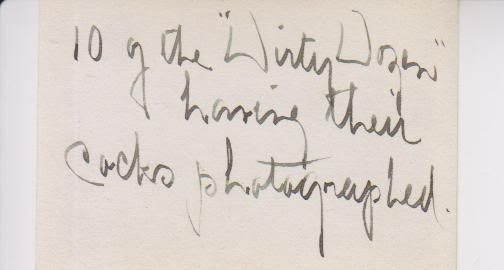 10 of the "Dirty Dozen"
having their
cocks photographed.